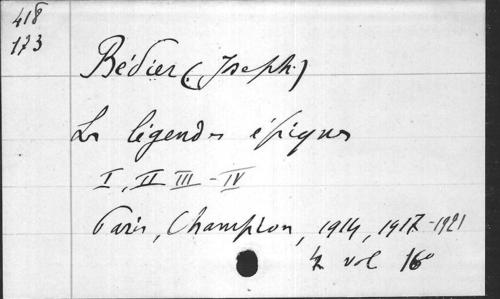 418
173
Bédier (Joseph.)
Les légendes épiques
I, II III - IV
Paris, Champion, 1914, 1917-1921
4 vol 16°